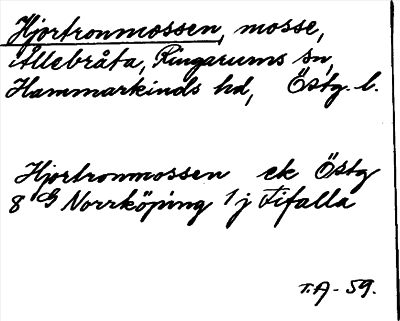 Hjortronmossen, mosse,
Ållebråta, Ringarums sn,
Hammarkinds hd, Östg. l.
Hjortronmossen ek Östg
8 G Norrköping 1 j Fifalla
T.A - 59.